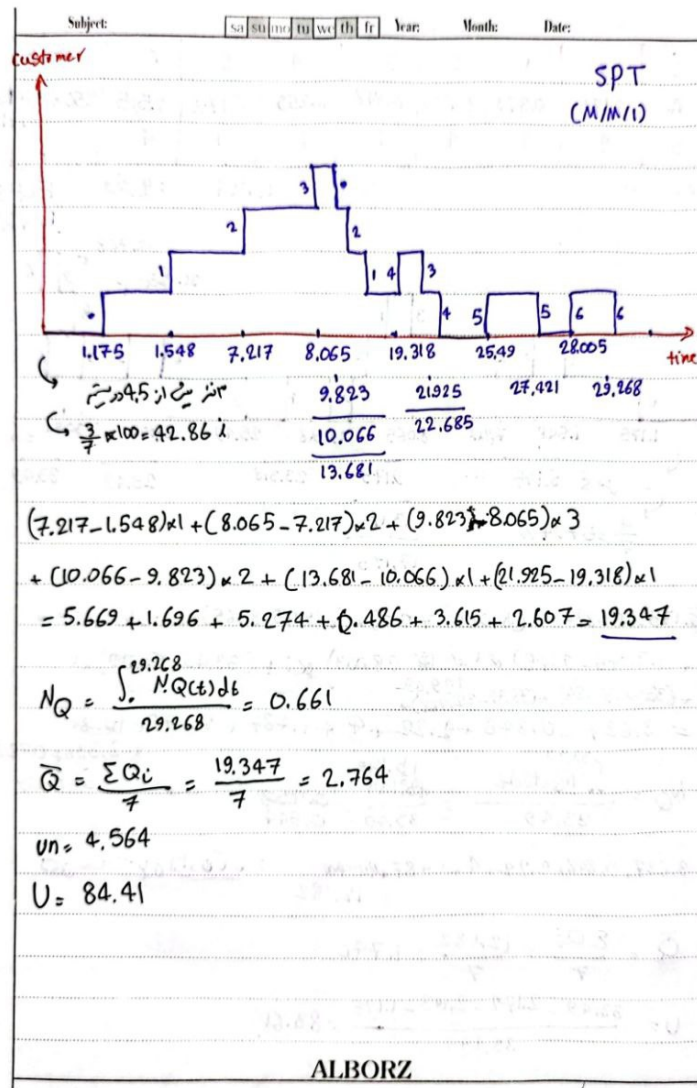 Subject: sa su mo tu we th fr Year: Month: Date:
customer
SPT
(M/M/1)
3 •
2 2
1 1 4 3
• 4 5 5 6 6
1.175 1.548 7.217 8.065 19.318 25.49 28.005 time
9.823 21.925 27.421 29.268
10.066 22.685
13.681
از 4.5
3/7 x100 = 42.86 %
(7.217-1.548)x1 + (8.065-7.217)x2 + (9.823-8.065)x3
+ (10.066-9.823)x2 + (13.681-10.066)x1 + (21.925-19.318)x1
= 5.669 + 1.696 + 5.274 + 0.486 + 3.615 + 2.607 = 19.347
NQ = ∫.^29.268 NQ(t)dt / 29.268 = 0.661
Q̅ = ΣQi / 7 = 19.347 / 7 = 2.764
un = 4.564
U = 84.41
ALBORZ